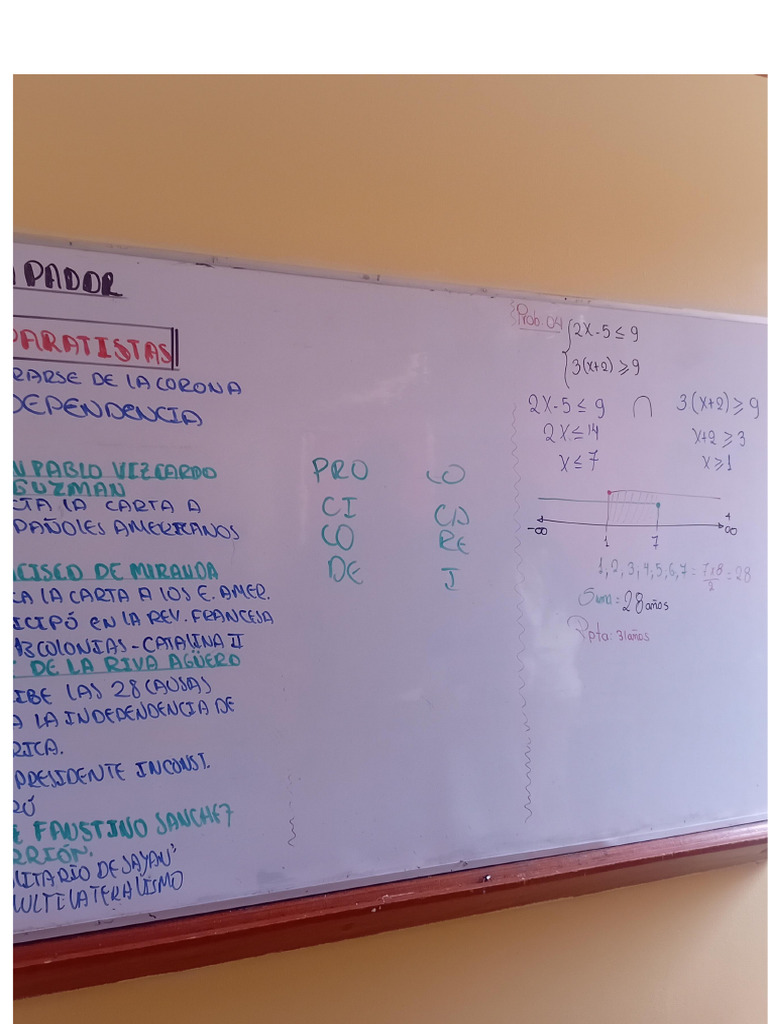 PADOR
PARATISTAS
RARSE DE LA CORONA
DEPENDENCIA
N PABLO VIZCARDO
GUZMAN
CTA LA CARTA A
PAÑOLES AMERICANOS
CISCO DE MIRANDA
CA LA CARTA A LOS E. AMER.
ICIPÓ EN LA REV. FRANCESA
13 COLONIAS - CATALINA II
DE LA RIVA AGÜERO
IBE LAS 28 CAUSAS
A LA INDEPENDENCIA DE
RICA.
PRESIDENTE INCONST.
RÚ
E FAUSTINO SANCHEZ
RRIÓN.
LITARIO DE SAYAN"
MULTILATERALISMO
PRO CO
CI
CO RE
DE I
Prob: 04
2x - 5 ≤ 9
3(x+2) ≥ 9
2x - 5 ≤ 9 ∩ 3(x+2) ≥ 9
2x ≤ 14 x+2 ≥ 3
x ≤ 7 x ≥ 1
-∞ 1 7 +∞
1, 2, 3, 4, 5, 6, 7 = 7x8/2 = 28
Suma = 28 años
Rpta: 31 años